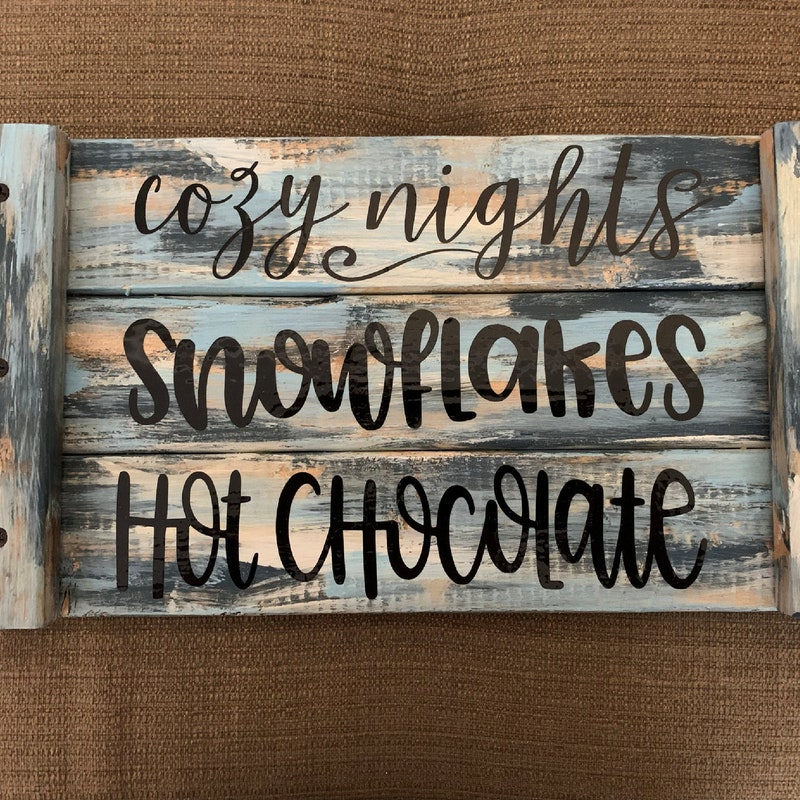 cozy nights
Snowflakes
Hot Chocolate